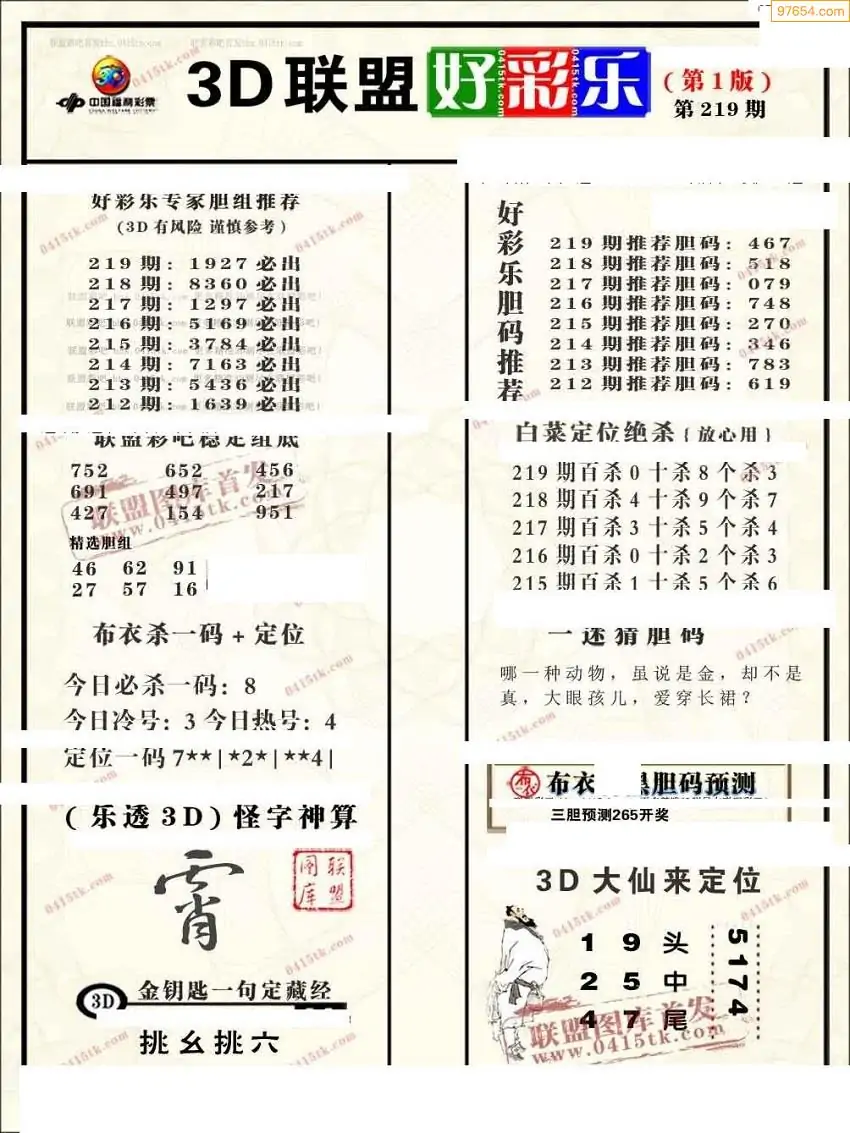 97654.com
中国福利彩票
CHINA WELFARE LOTTERY
3D联盟好彩乐
0415tk.com
0415tk.com
(第1版)
第219期
好彩乐专家胆组推荐
(3D有风险 谨慎参考)
219期: 1927必出
218期: 8360必出
217期: 1297必出
216期: 5169必出
215期: 3784必出
214期: 7163必出
213期: 5436必出
212期: 1639必出
联盟彩吧稳定组底
752 652 456
691 497 217
427 154 951
精选胆组
46 62 91
27 57 16
联盟图库首发
www.0415tk.com
布衣杀一码+定位
今日必杀一码: 8
今日冷号: 3 今日热号: 4
定位一码7**|*2*|**4|
(乐透3D)怪字神算
霄
联盟图库
3D 金钥匙一句定藏经
挑幺挑六
好彩乐胆码推荐
219期推荐胆码: 467
218期推荐胆码: 518
217期推荐胆码: 079
216期推荐胆码: 748
215期推荐胆码: 270
214期推荐胆码: 346
213期推荐胆码: 783
212期推荐胆码: 619
白菜定位绝杀{放心用}
219期百杀0十杀8个杀3
218期百杀4十杀9个杀7
217期百杀3十杀5个杀4
216期百杀0十杀2个杀3
215期百杀1十杀5个杀6
一迷猜胆码
哪一种动物，虽说是金，却不是
真，大眼孩儿，爱穿长裙？
布衣 胆码预测
三胆预测265开奖
3D大仙来定位
1 9 头
2 5 中
4 7 尾
5174
联盟图库首发
www.0415tk.com